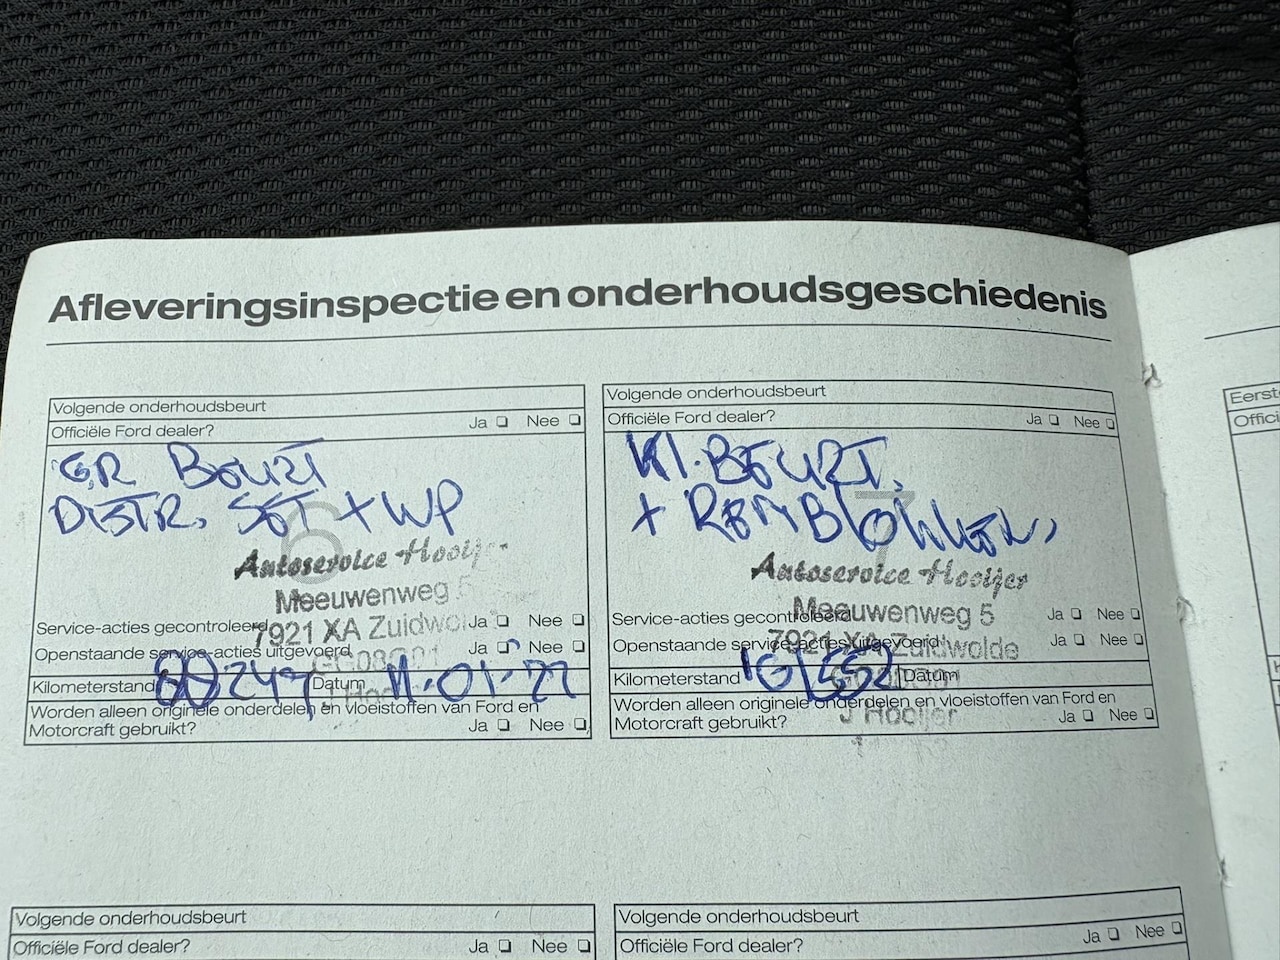 Afleveringsinspectie en onderhoudsgeschiedenis
Volgende onderhoudsbeurt
Officiële Ford dealer? Ja Nee
GR BEURT
DISTR. SET + WP
6
Autoservice Hooijer
Meeuwenweg 5
7921 XA Zuidwol
Service-acties gecontroleerd Ja Nee
Openstaande service-acties uitgevoerd Ja Nee
Kilometerstand Datum 11-01-22
Worden alleen originele onderdelen en vloeistoffen van Ford en
Motorcraft gebruikt? Ja Nee
Volgende onderhoudsbeurt
Officiële Ford dealer? Ja Nee
Kl. BEURT.
+ REMBLOKKEN,
7
Autoservice Hooijer
Meeuwenweg 5
7921 XA Zuidwolde
J Hooijer
Service-acties gecontroleerd Ja Nee
Openstaande service-acties uitgevoerd Ja Nee
Kilometerstand Datum
Worden alleen originele onderdelen en vloeistoffen van Ford en
Motorcraft gebruikt? Ja Nee
Volgende onderhoudsbeurt
Officiële Ford dealer? Ja Nee
Volgende onderhoudsbeurt
Officiële Ford dealer? Ja Nee
Eerst
Offici